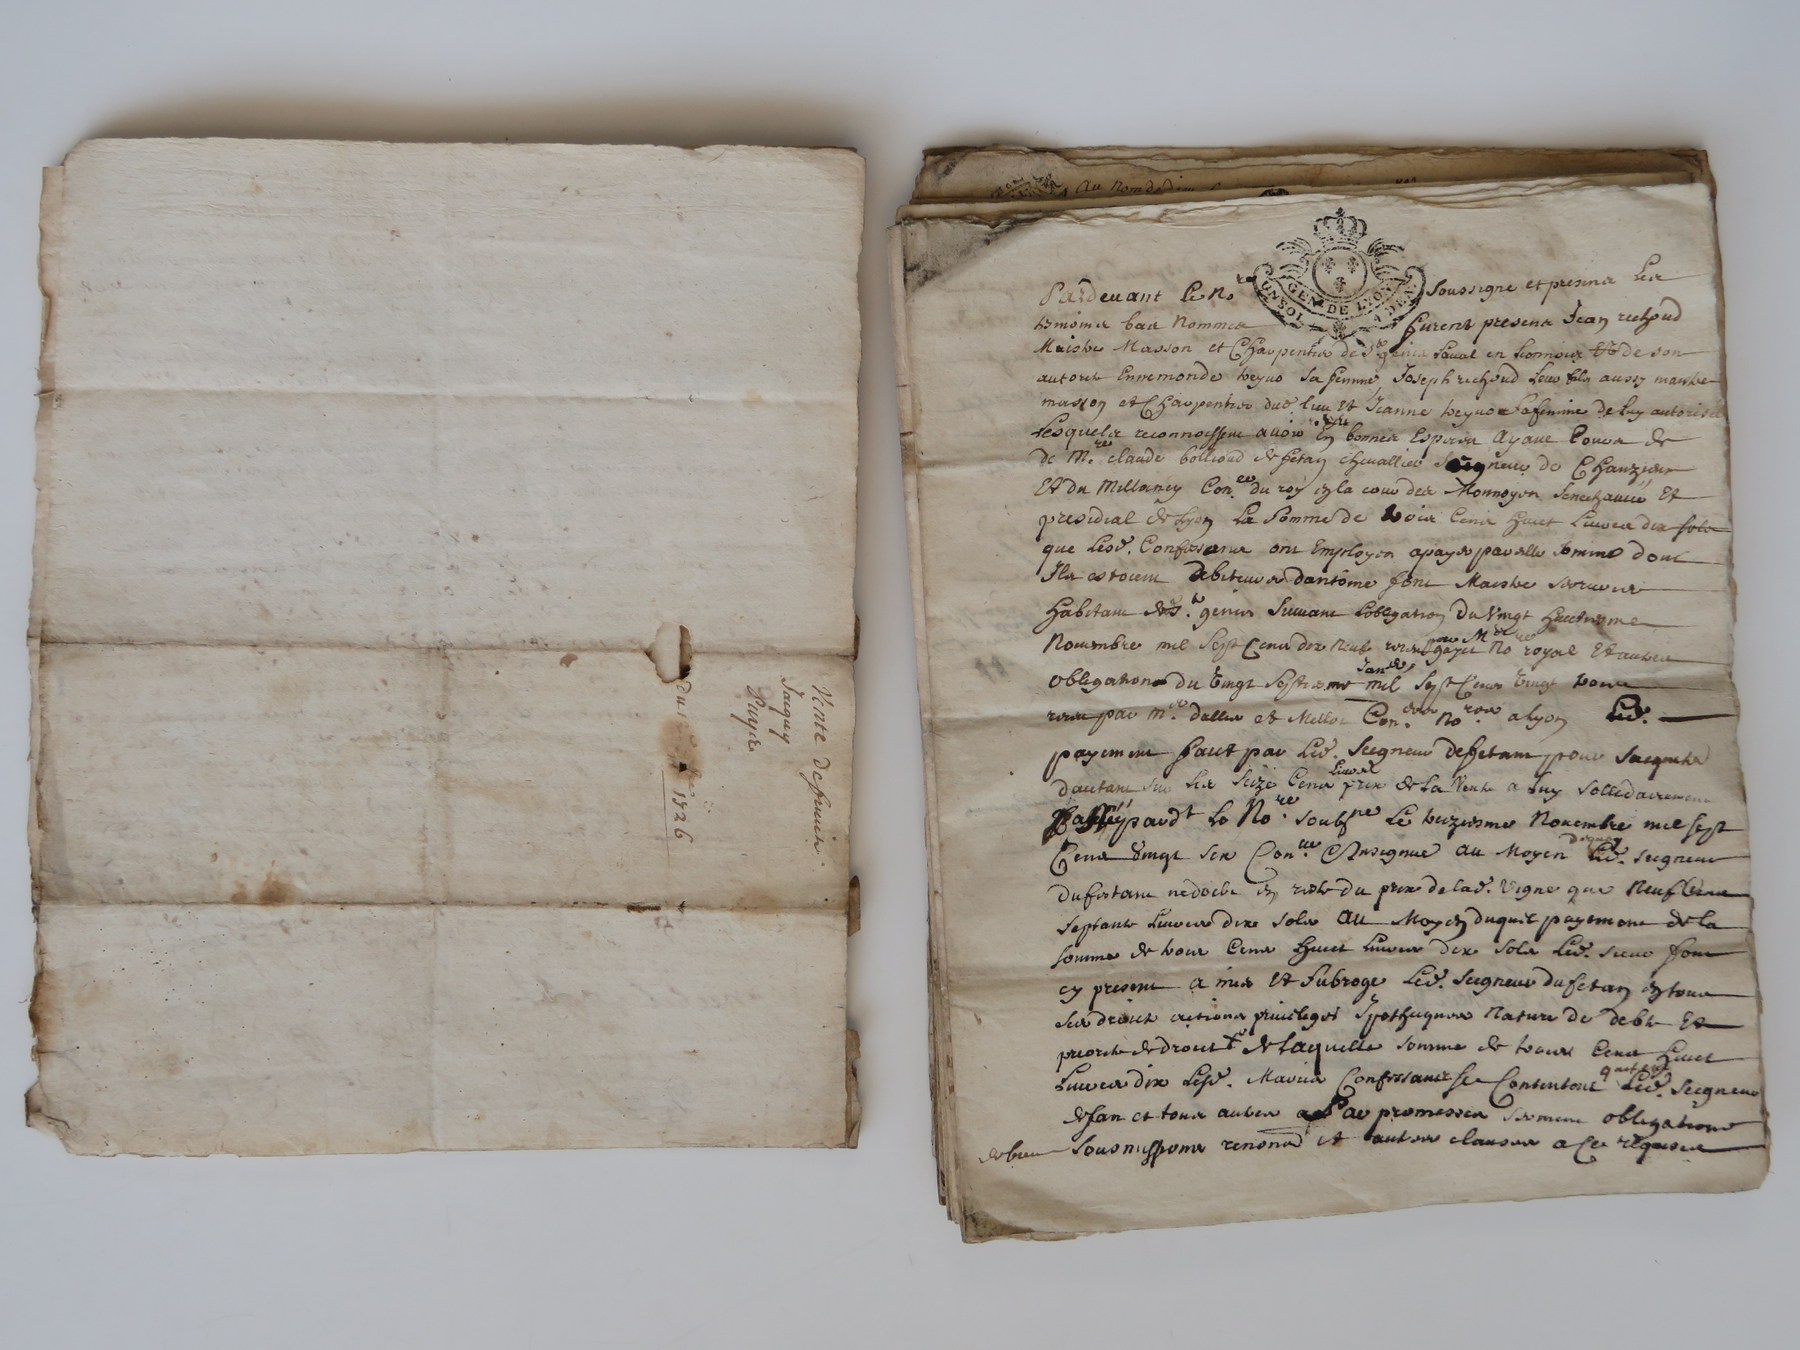 Vente de
Jaquey
du
1726
au nom de dieu
GEN DE LYON
Pardevant le No.re soussigné et presens les
temoins bas nommes furent presens Jean richoud
Maistre Masson et Charpentier de St genis Laval en et de son
autorité Ennemonde sa femme, Joseph richoud leur fils aussy maistre
masson et Charpentier dud. lieu et Jeanne sa femme de luy autorisée
Lesquels reconnoissent avoir en bonnes Espèces ayant cours de
de M.re claude bollioud de fetan chevallier seigneur de Chanzieu
Et du Con.er du roy en la cour des Monnoyes senechaussé Et
presidial de Lyon La somme de trois Cens huit Livres dix sols
que Lesd. Confessans ont Employez a payer pareille somme dont
Ils estoient debiteurs dantôine font Maistre serrurier
habitant de St genis suivant Lobligation du vingt huictiesme
Novembre mil sept Cens dix neuf receu par Me gayet No.re royal Et autre
obligation du vingt septiesme janv. mil sept Cens vingt trois
receue par m.e dallier et Con.ers No.res a Lyon Led.
payement fait par Led. seigneur de fetant pour sacquiter
dautant sur les seize Cens livres prix de la vente a luy sollidairement
passé pardt le No.re soubsne le treiziesme Novembre mil sept
Cens vingt six au moyen dequoy Led. seigneur
du fetant ne doibt en reste du prix de lad. vigne que neuf Cens
septante livres dix sols au moyen duquel payement de la
somme de trois Cens huit livres dix sols Led. sieur font
cy present a mis et subrogé Led. seigneur du fetan en tous
ses droits actions privileges hypotheques nature de debte et
priorité de droit de laquelle somme de trois Cens huit
livres dix Confessans se Contentent quittent Led. seigneur
de fan et tous autres par promesses serment obligations
de biens soumissions renond et autres clauses a ce requises